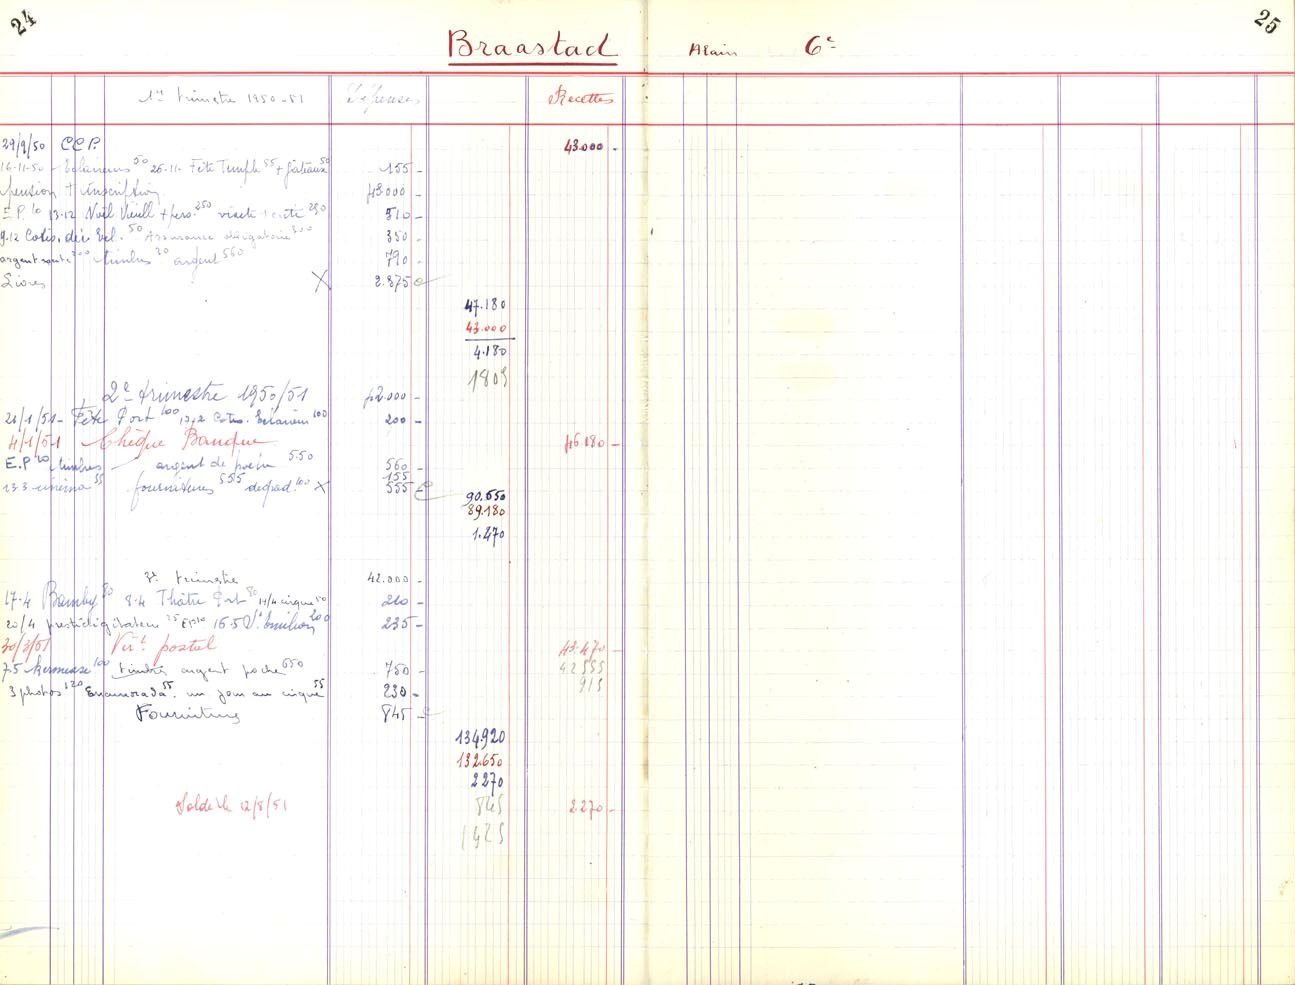 24
25
Braastad Alain 6e
1er trimestre 1950-51 Dépenses Recettes
29/9/50 CCP. 43.000 -
16-11-50 - Eclaireurs 50 26-11- Fête Temple 55 + gâteaux 50 155 -
pension + inscription 43.000 -
E.P. 10 13-12 Noël Vieill + pers. 250 visite 250 510 -
9.12 Cotis. déc Ecl. 50 Assurance obligatoire 300 350 -
argent route 200 timbres 30 argent 560 790 -
Livres X 2.375
47.180
43.000
4.180
1805
2e trimestre 1950/51 42.000 -
21/1/51- Fête Port 100 17/2 Cotis. Eclaireurs 100 200 -
4/1/51 Chèque Banque 46.180 -
E.P 10 timbres argent de poche 550 560 -
155
13 3 cinéma 55 fournitures 555 dégrad. 100 X 555
90.650
89.180
1.470
3e trimestre 42.000 -
17-4 Bamby 80 8-4 Théâtre Port 80 14/4 cirque 50 210 -
20/4 prestidigitateur 25 EP 10 16.5 St Emilion 200 235 -
30/3/51 Virt postal 43.470 -
7.5 kermesse 100 timbres argent poche 650 750 -
42555
915
3 photos 120 Enamorada 55. un jour au cirque 55 230 -
Fournitures 845 -
134920
132.650
2270
Solde le 12/8/51 2.270 -
845
1425